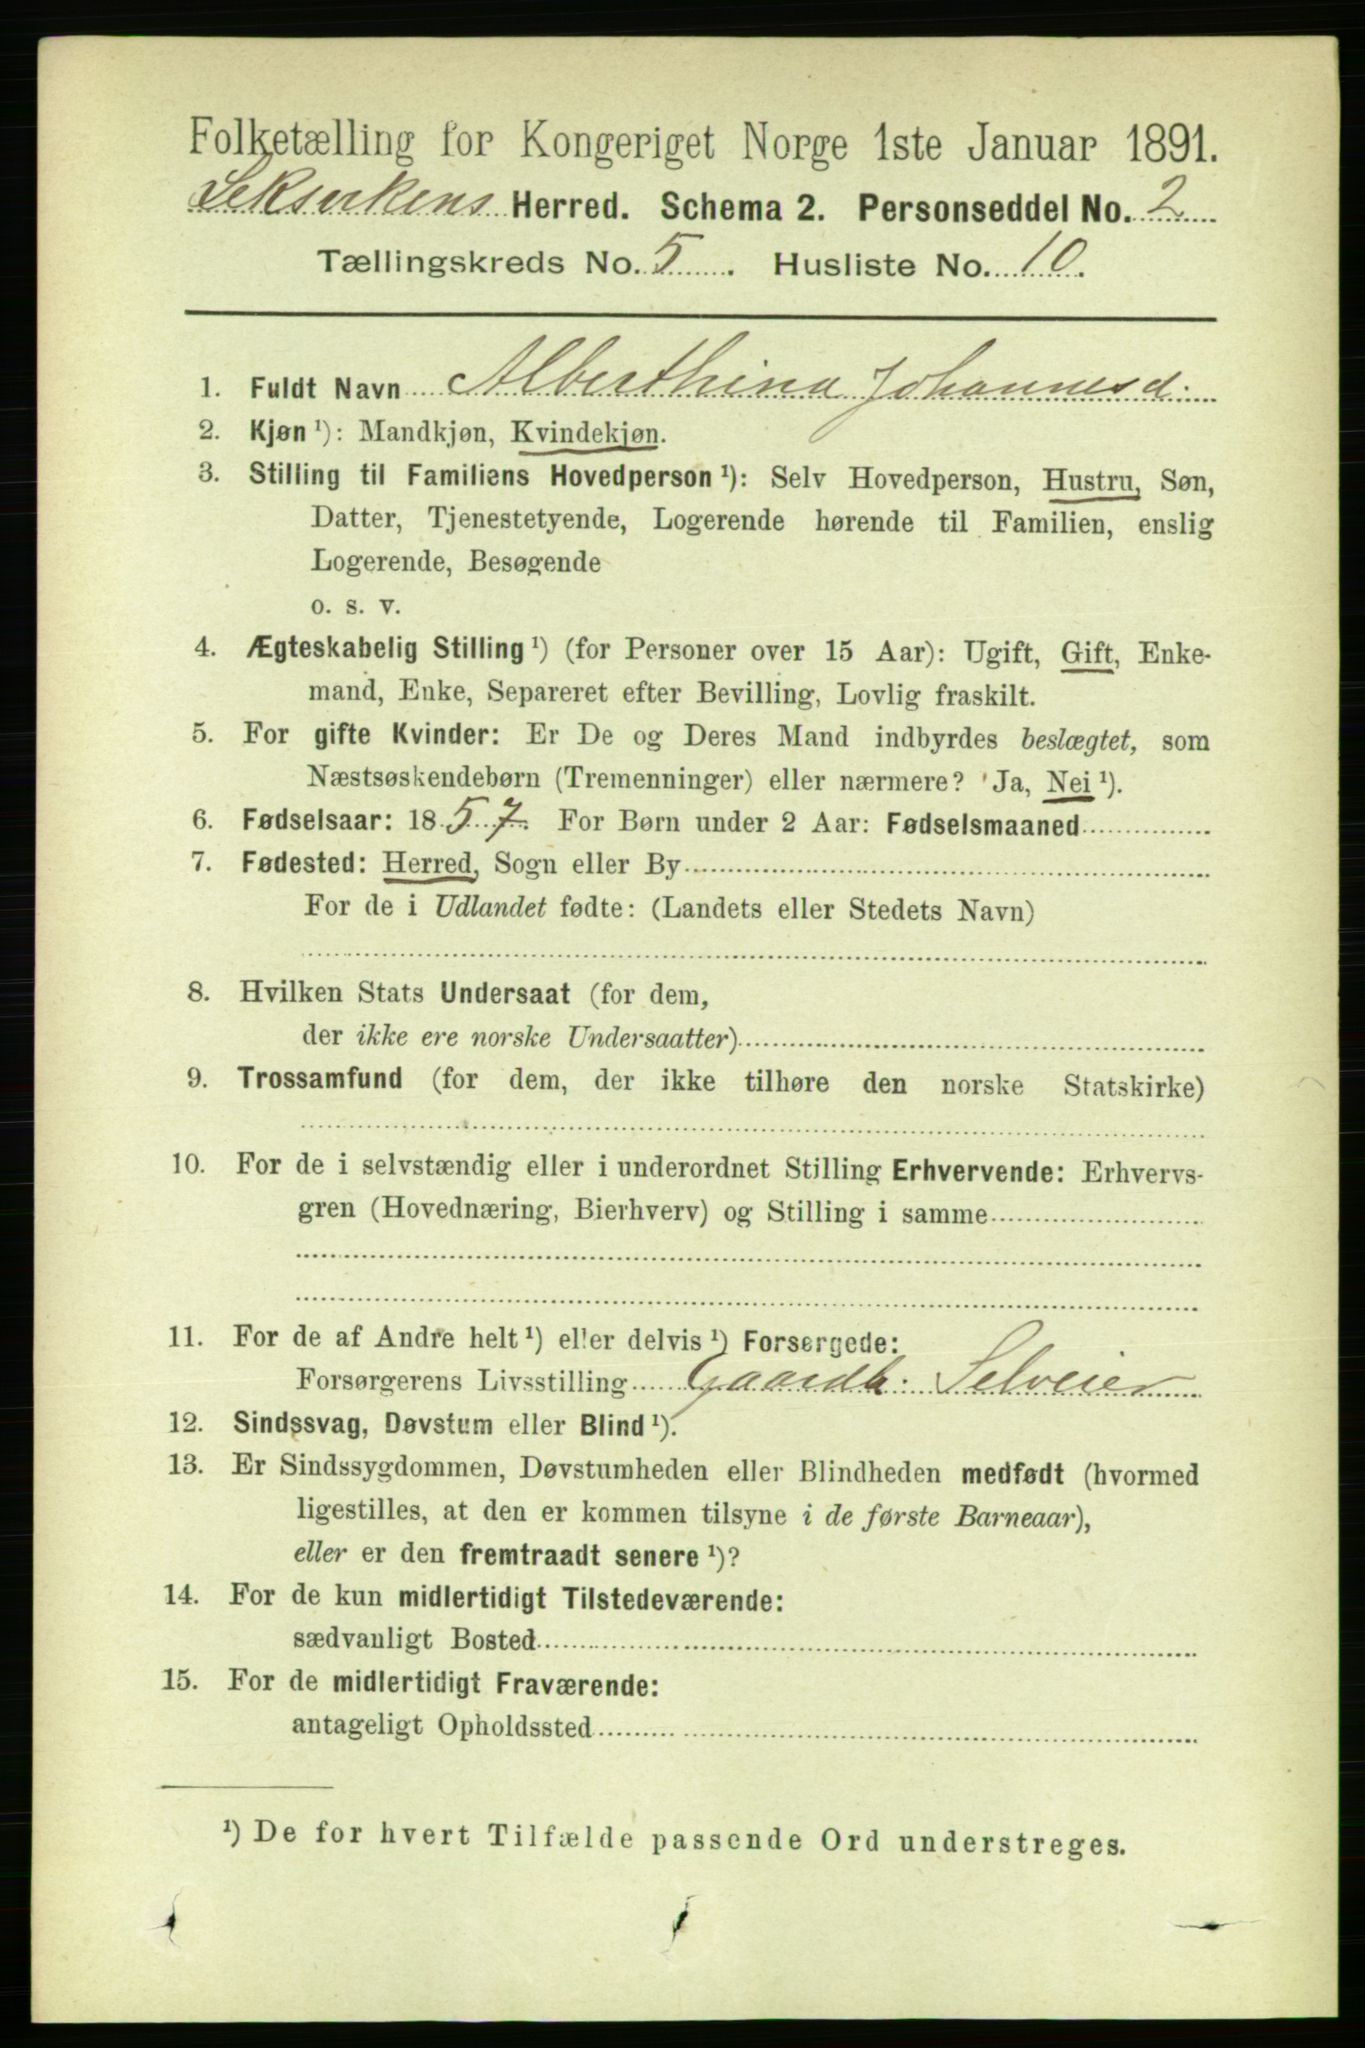 Folketælling for Kongeriget Norge 1ste Januar 1891.
Leksvikens Herred. Schema 2. Personseddel No. 2
Tællingskreds No. 5. Husliste No. 10.
1. Fuldt Navn Alberthina Johannesd.
2. Kjøn ¹): Mandkjøn, Kvindekjøn.
3. Stilling til Familiens Hovedperson ¹): Selv Hovedperson, Hustru, Søn,
Datter, Tjenestetyende, Logerende hørende til Familien, enslig
Logerende, Besøgende
o. s. v.
4. Ægteskabelig Stilling ¹) (for Personer over 15 Aar): Ugift, Gift, Enke-
mand, Enke, Separeret efter Bevilling, Lovlig fraskilt.
5. For gifte Kvinder: Er De og Deres Mand indbyrdes beslægtet, som
Næstsøskendebørn (Tremenninger) eller nærmere? Ja, Nei ¹).
6. Fødselsaar: 1857. For Børn under 2 Aar: Fødselsmaaned
7. Fødested: Herred, Sogn eller By
For de i Udlandet fødte: (Landets eller Stedets Navn)
8. Hvilken Stats Undersaat (for dem,
der ikke ere norske Undersaatter)
9. Trossamfund (for dem, der ikke tilhøre den norske Statskirke)
10. For de i selvstændig eller i underordnet Stilling Erhvervende: Erhvervs-
gren (Hovednæring, Bierhverv) og Stilling i samme
11. For de af Andre helt ¹) eller delvis ¹) Forsørgede:
Forsørgerens Livsstilling Gaardb. Selveier
12. Sindssvag, Døvstum eller Blind ¹).
13. Er Sindssygdommen, Døvstumheden eller Blindheden medfødt (hvormed
ligestilles, at den er kommen tilsyne i de første Barneaar),
eller er den fremtraadt senere ¹)?
14. For de kun midlertidigt Tilstedeværende:
sædvanligt Bosted
15. For de midlertidigt Fraværende:
antageligt Opholdssted
¹) De for hvert Tilfælde passende Ord understreges.